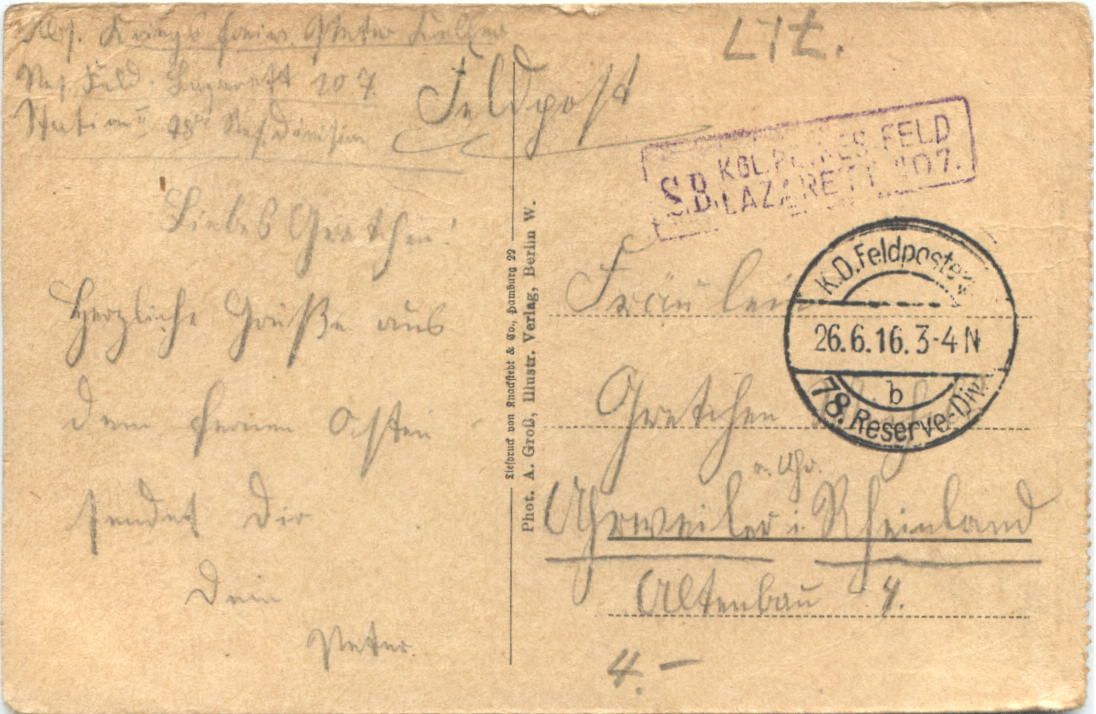 Abs. Kriegsfreiw. Peter
Res. Feld-Lazarett 107
Station 78. Res. Division
Feldpost
Lit.
S.B. KGL. PR. RES. FELD
LAZARETT 107.
K.D. Feldpostex.
26.6.16. 3-4 N
b
78. Reserve-Div.
Liebes Gretchen!
Herzliche Grüße aus
dem fernen Osten
sendet Dir
Dein
Peter.
Tiefdruck von Knackstedt & Co., Hamburg 22
Phot. A. Groß, Illustr. Verlag, Berlin W.
Fräulein
Gretchen
a. Ahr.
Ahrweiler i. Rheinland
Altenbau 4.
4.-